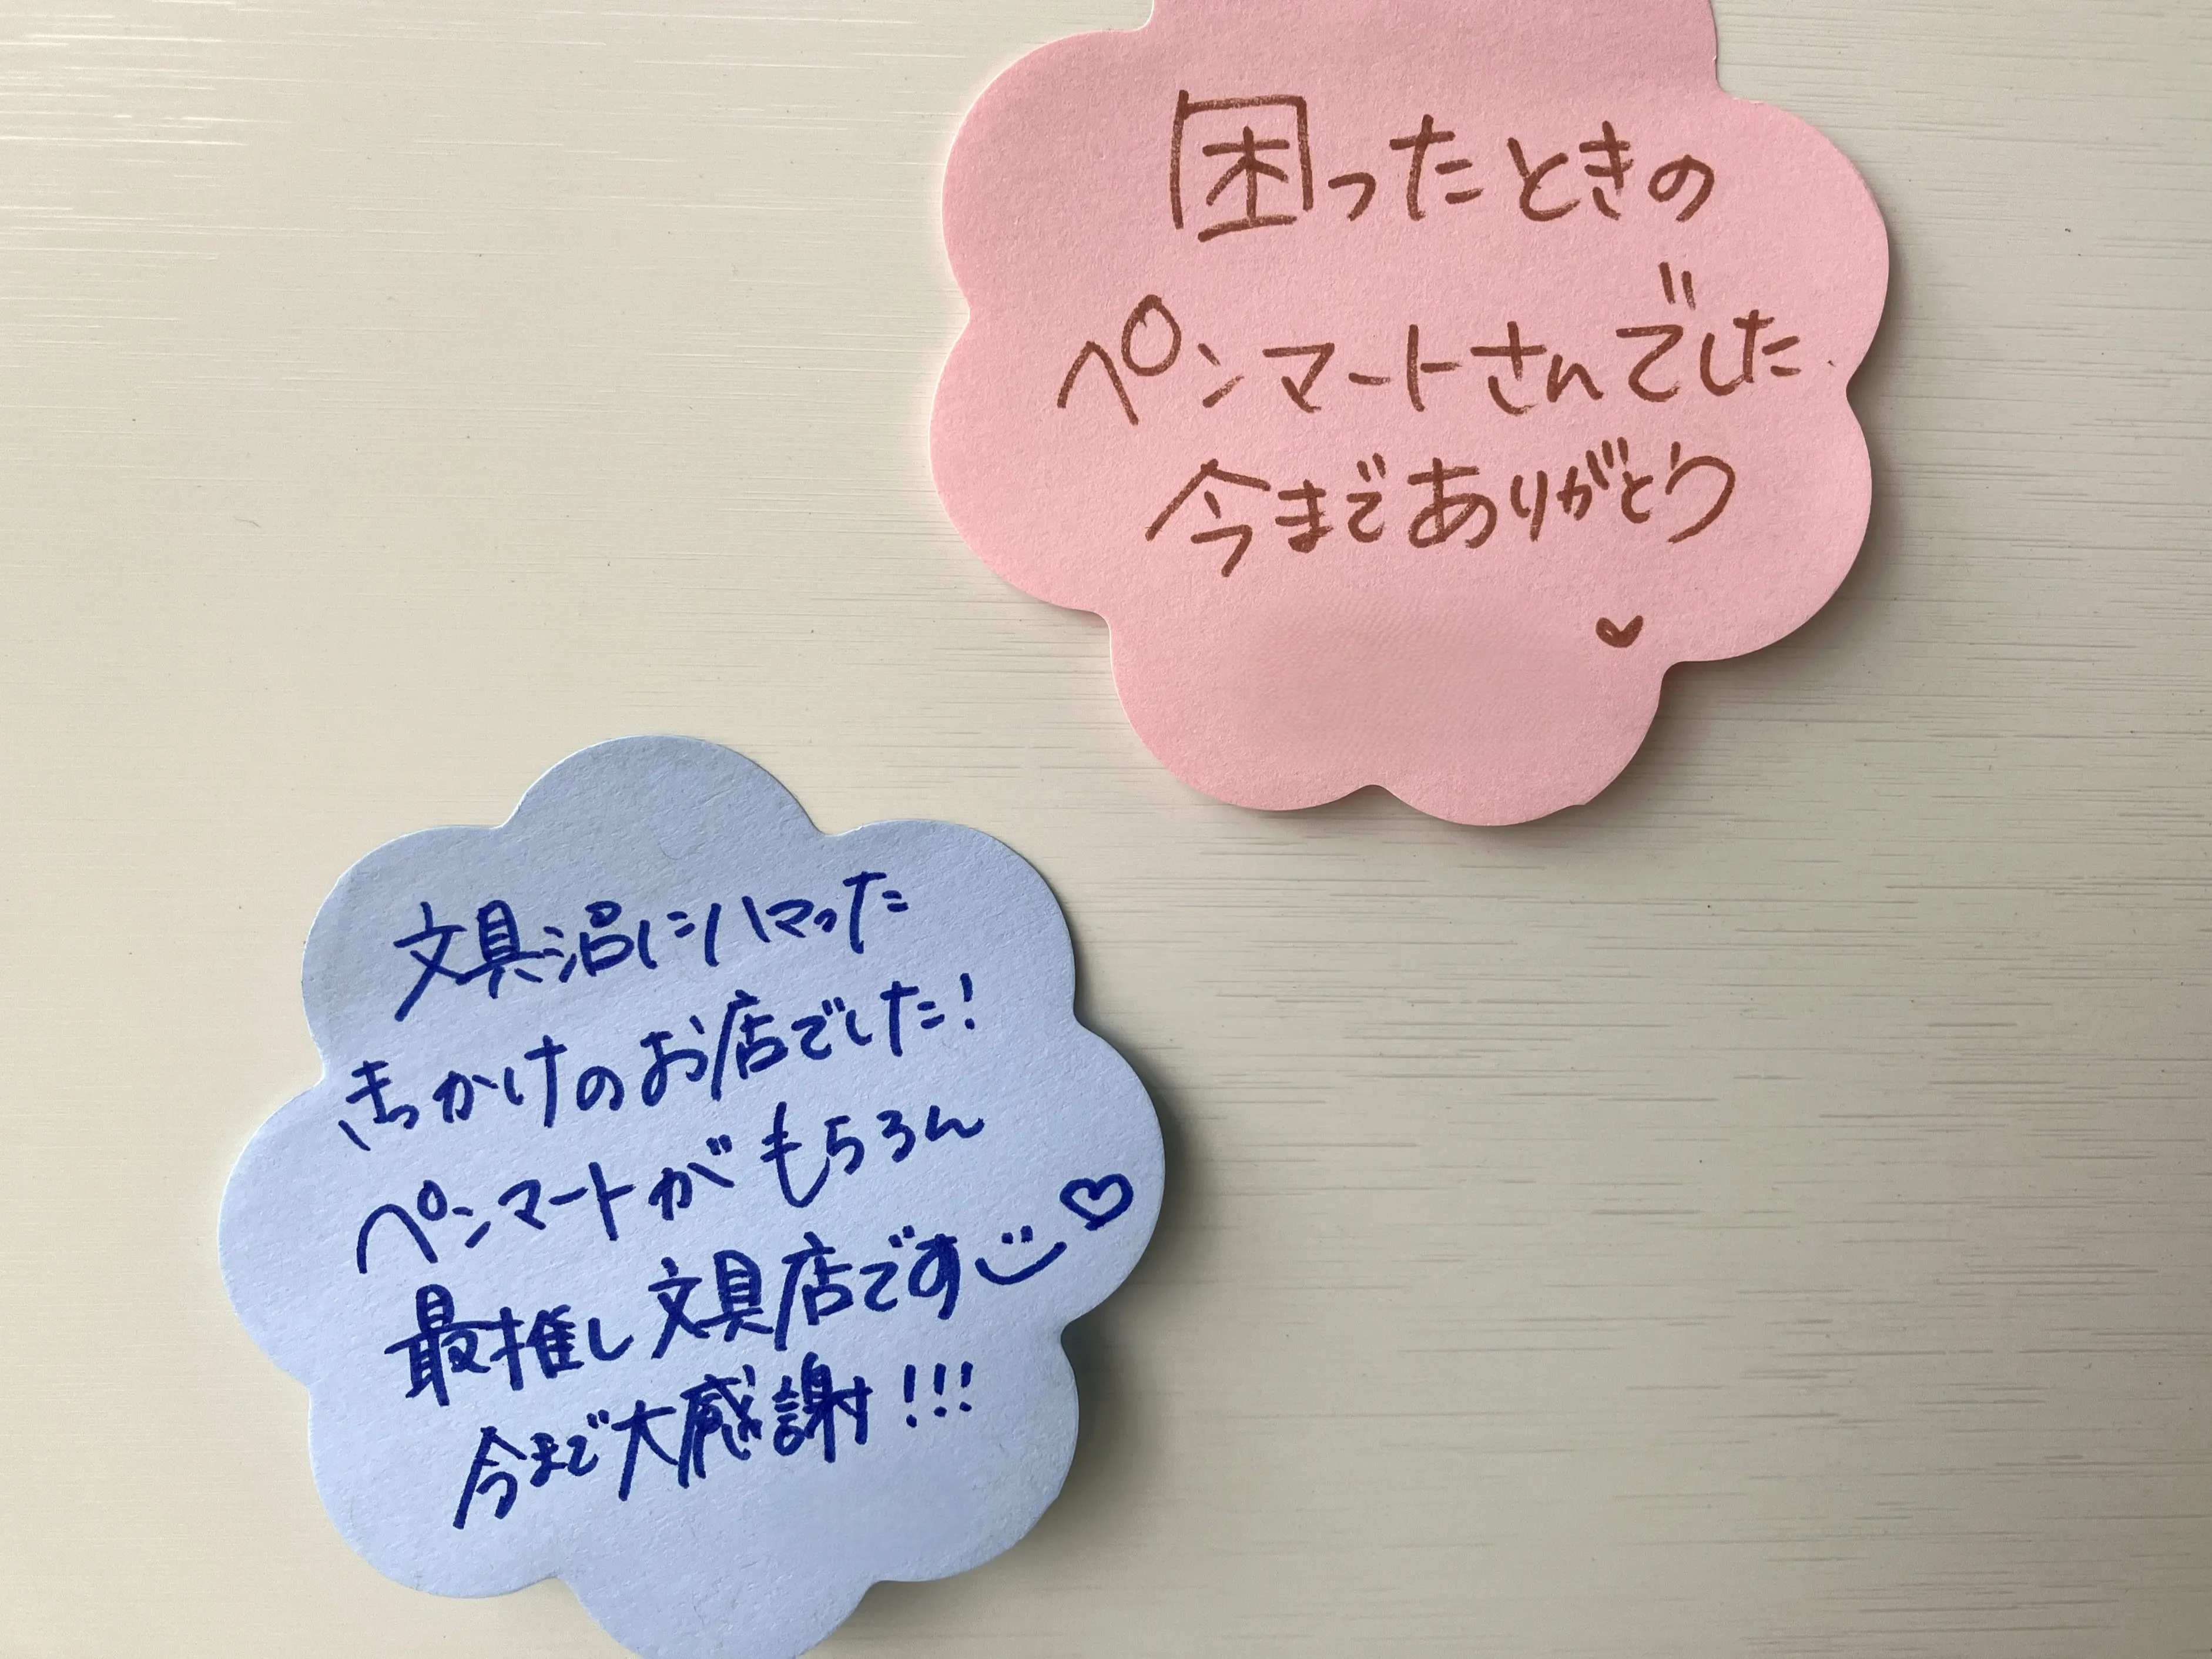 困ったときの
ペンマートさんでした
今までありがとう
文具沼にハマった
きっかけのお店でした!
ペンマートがもちろん
最推し文具店です
今まで大感謝!!!